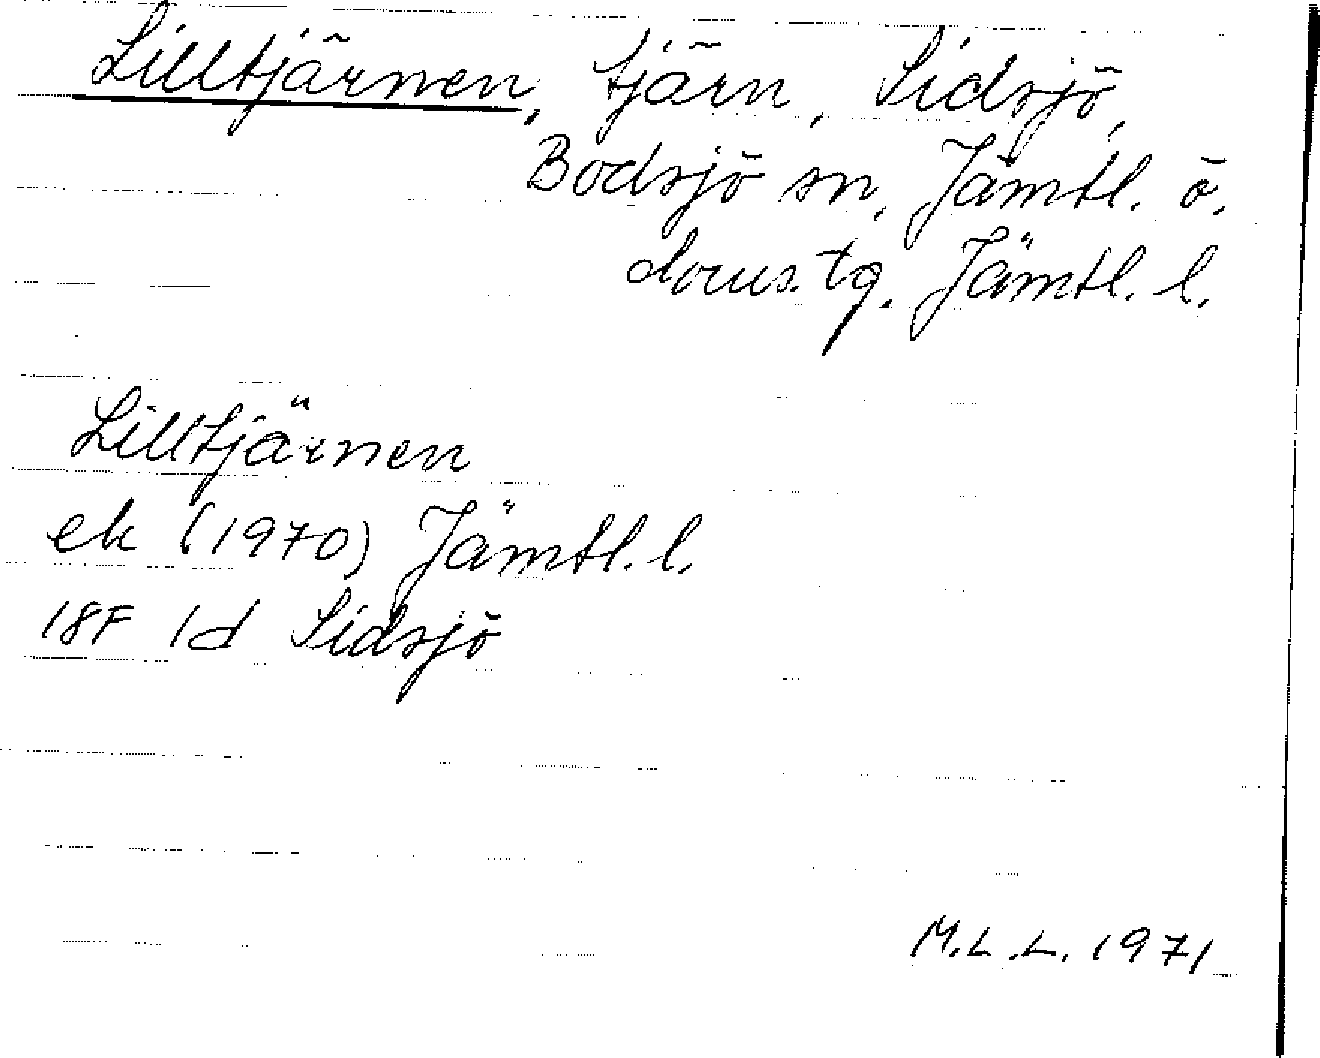 Lilltjärnen, tjärn, Sidsjö,
Bodsjö sn, Jämtl. ö.
doms. tg. Jämtl. l.
Lilltjärnen
ek (1970) Jämtl. l.
18F 1d Sidsjö
M.L.L. 1971